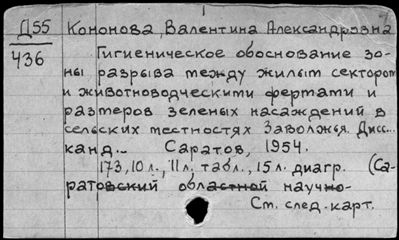 Д55 Кононова, Валентина Александровна
436 Гигиеническое обоснование зо-
ны разрыва между жилым сектором
и животноводческими фермами и
размеров зеленых насаждений в
сельских местностях Заволжья. Дисс...
канд... Саратов, 1954.
173, 10 л., 11 л. табл., 15 л. диагр. (Са-
ратовский областной научно-
См. след. карт.